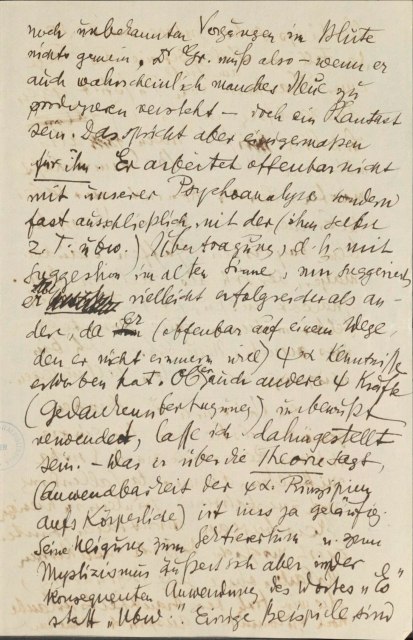 noch unbekannten Vorgängen im Blute
nichts gemein. Dr Gr. muß also – wenn er
auch wahrscheinlich manches Neue zu
produzieren versteht – doch ein Phantast
sein. Das spricht aber einigermaßen
für ihn. Er arbeitet offenbar nicht
mit unserer Psychoanalyse sondern
fast ausschließlich mit der (ihm selbst
z. T. ubw.) Übertragung, d. h. mit
Suggestion im alten Sinne, nur suggeriert
er vielleicht erfolgreicher als an-
dere, da Er (offenbar auf einem Wege,
den er nicht erinnern will) ψα Kenntnisse
erworben hat. Ob er auch andere ψ Kräfte
(Gedankenübertragung) unbewußt
verwendet, lasse ich dahingestellt
sein. – Was er über die Theorie sagt,
(Anwendbarkeit der ψα. Prinzipien
aufs Körperliche) ist uns ja geläufig.
Seine Neigung zum Sektierertum u. zum
Mystizismus äußert sich aber in der
konsequenten Anwendung des Wortes „Es“
statt „Ubw“. Einige Beispiele sind